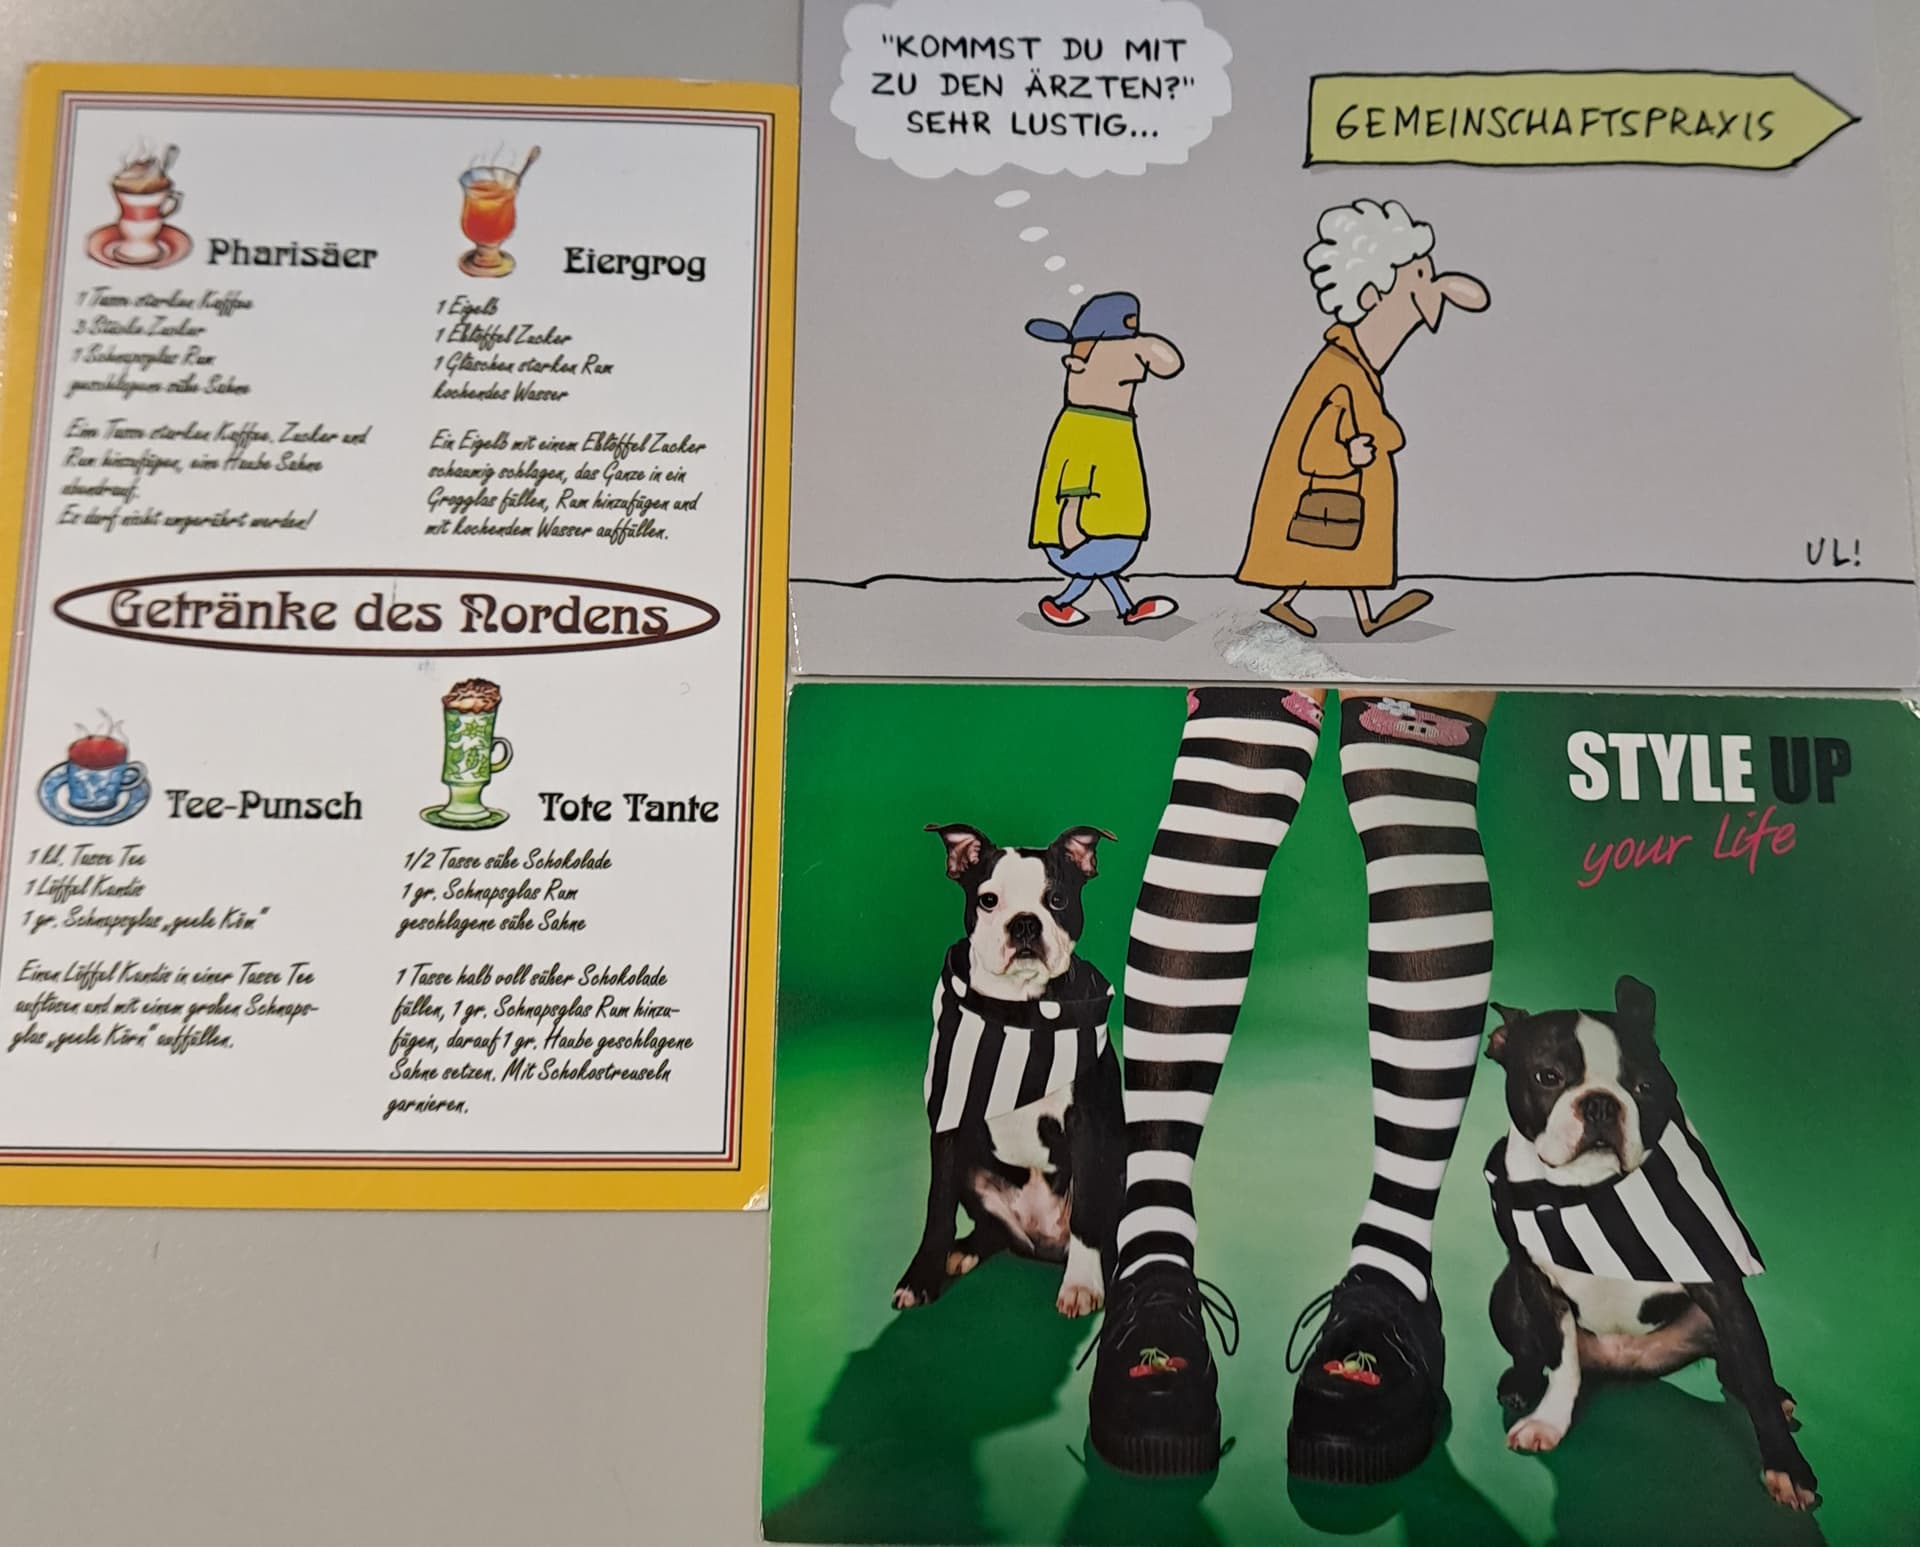 Pharisäer
1 Tasse starken Kaffee
3 Stücke Zucker
1 Schnapsglas Rum
geschlagene süße Sahne
Eine Tasse starken Kaffee, Zucker und
Rum hinzufügen, eine Haube Sahne
obendrauf.
Es darf nicht umgerührt werden!
Eiergrog
1 Eigelb
1 Eßlöffel Zucker
1 Gläschen starken Rum
kochendes Wasser
Ein Eigelb mit einem Eßlöffel Zucker
schaumig schlagen, das Ganze in ein
Grogglas füllen, Rum hinzufügen und
mit kochendem Wasser auffüllen.
Getränke des Nordens
Tee-Punsch
1 kl. Tasse Tee
1 Löffel Kandis
1 gr. Schnapsglas „geele Köm"
Einen Löffel Kandis in einer Tasse Tee
auflösen und mit einem großen Schnaps-
glas „geele Körn" auffüllen.
Tote Tante
1/2 Tasse süße Schokolade
1 gr. Schnapsglas Rum
geschlagene süße Sahne
1 Tasse halb voll süßer Schokolade
füllen, 1 gr. Schnapsglas Rum hinzu-
fügen, darauf 1 gr. Haube geschlagene
Sahne setzen. Mit Schokostreuseln
garnieren.
"KOMMST DU MIT
ZU DEN ÄRZTEN?"
SEHR LUSTIG...
GEMEINSCHAFTSPRAXIS
UL!
STYLE UP
your life